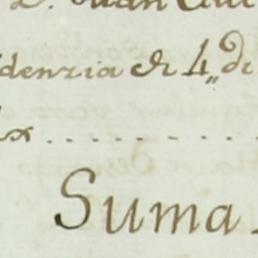 D. Juan
denzia di 4,, di
x . . . . . . . . .
Suma